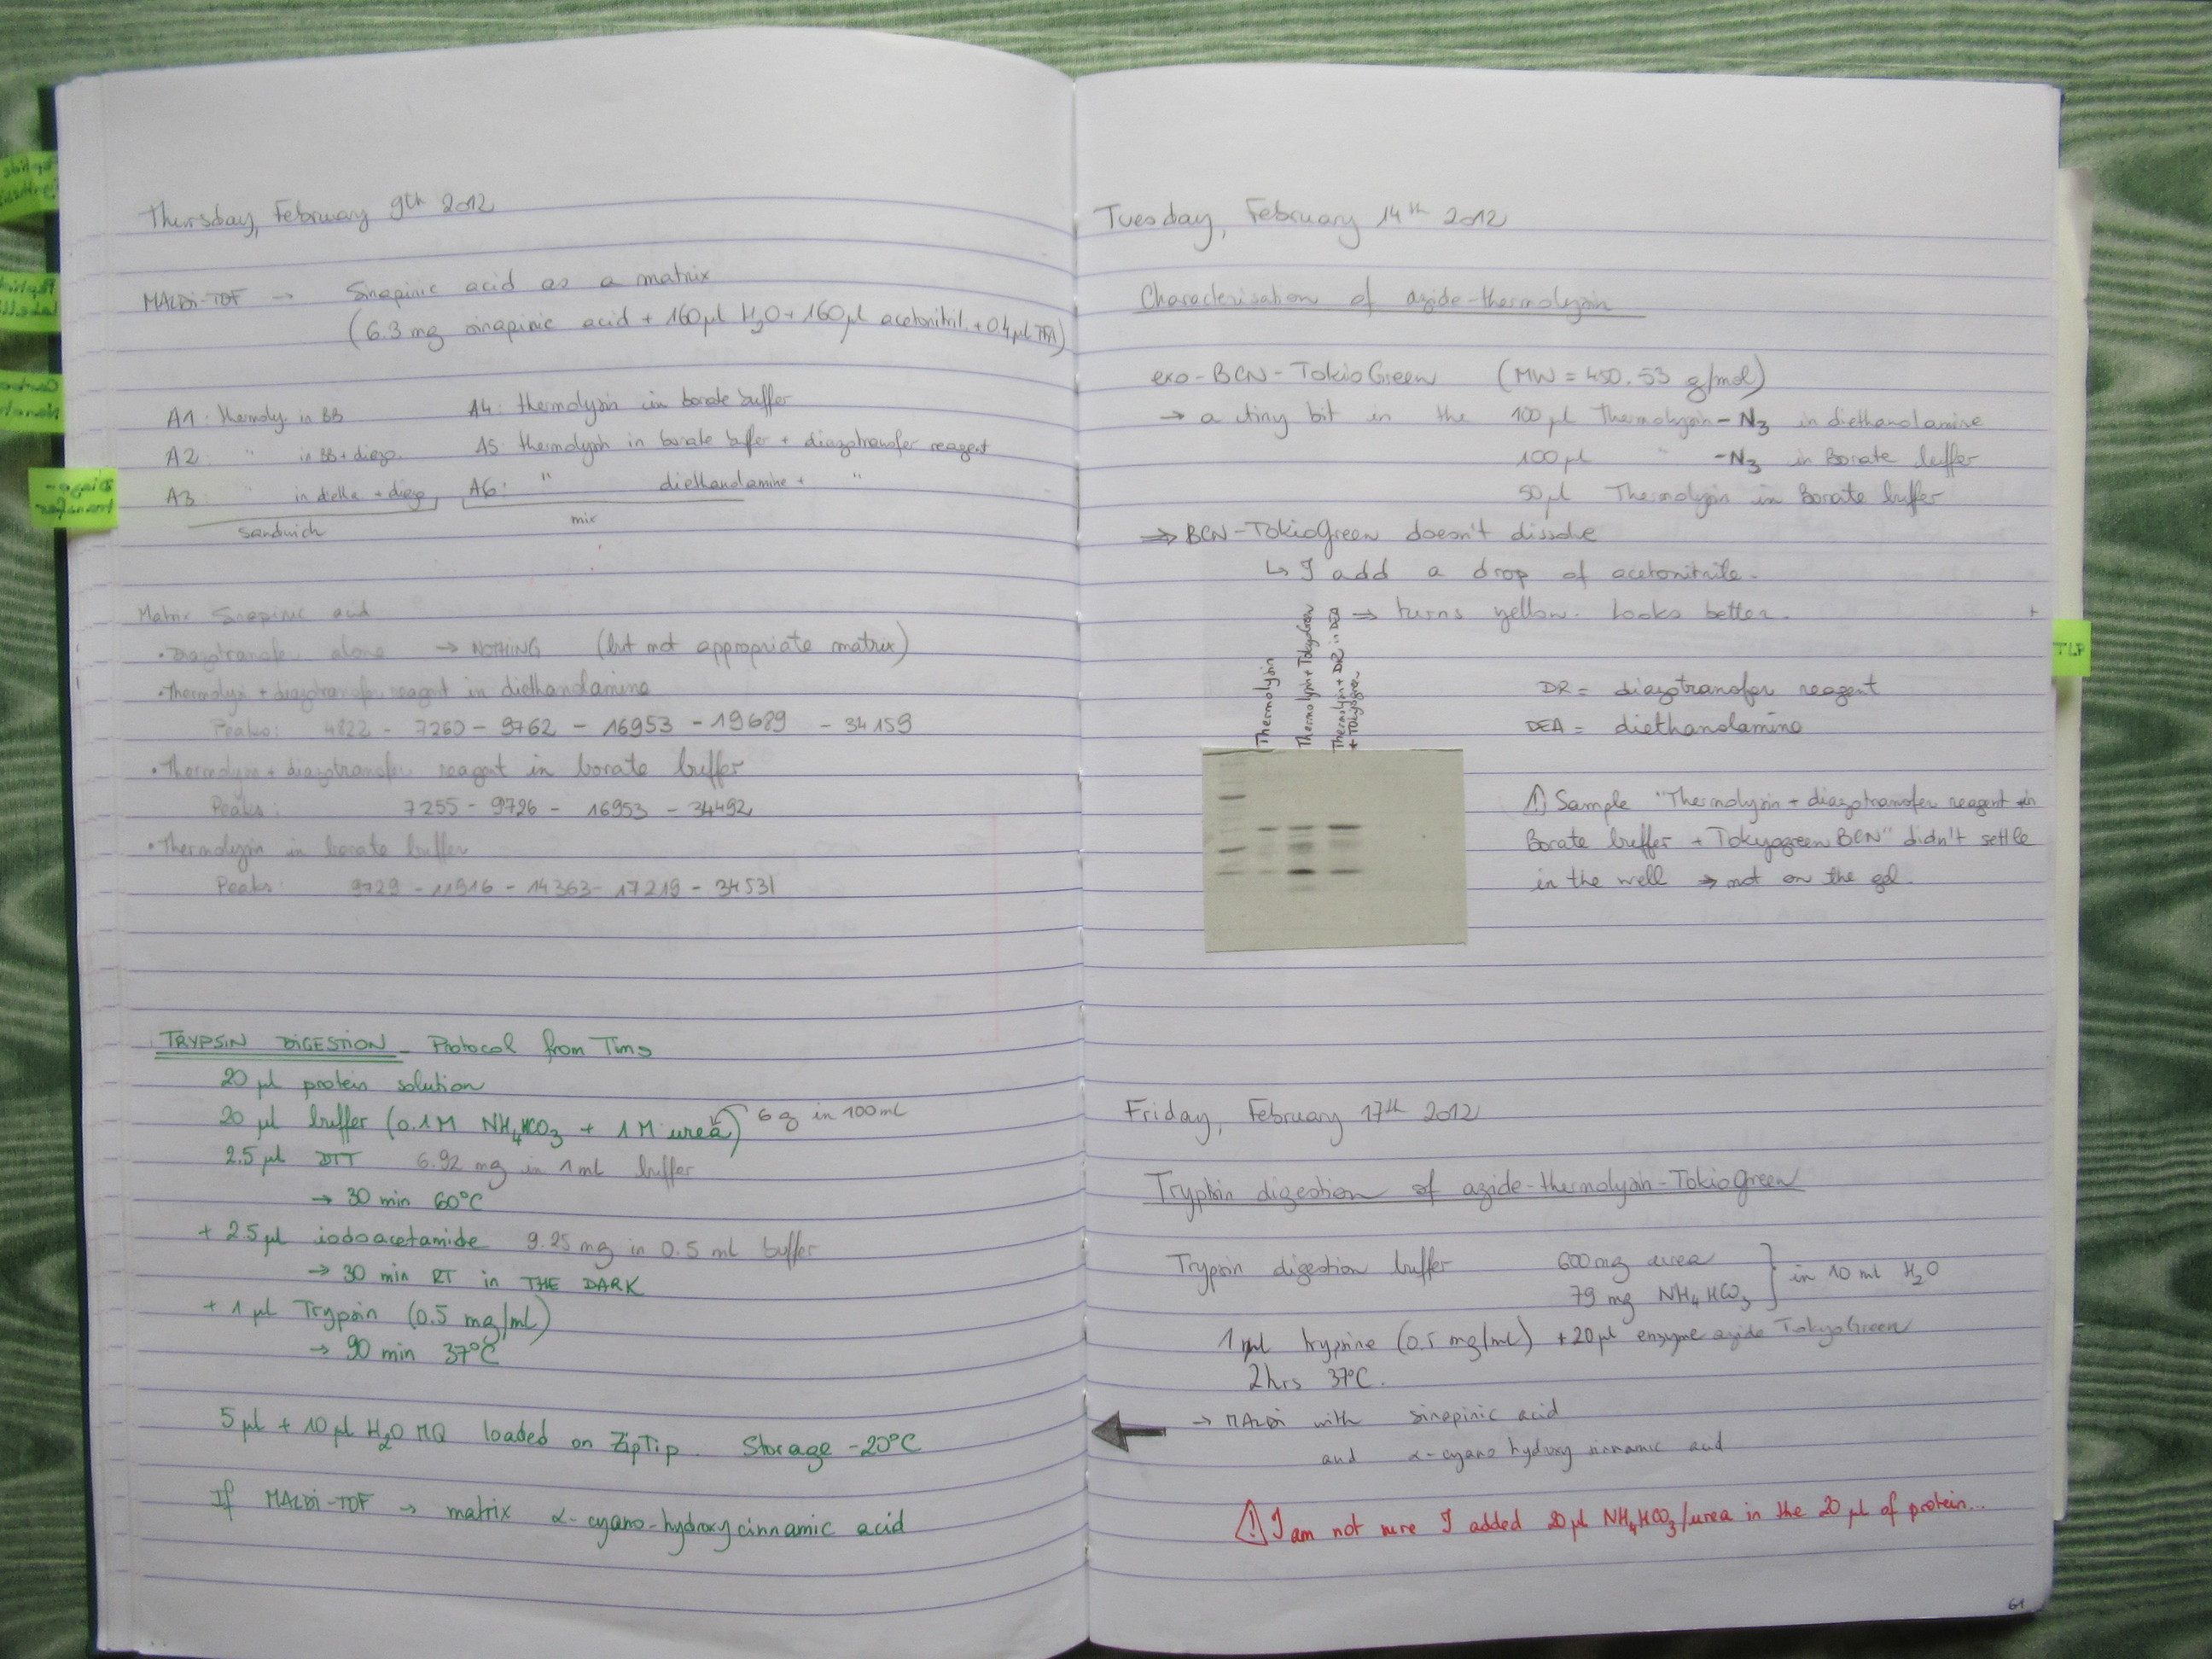 Thursday, February 9th 2012
MALDi-TOF → Sinapinic acid as a matrix
(6.3 mg sinapinic acid + 160 µl H2O + 160 µl acetonitril. + 0.4 µl TFA)
A1: thermoly. in BB
A2: " in BB + diazo.
A3: " in dietha + diazo
sandwich
A4: thermolysin in borate buffer
A5 thermolysin in borate buffer + diazotransfer reagent
A6: " diethanolamine + "
mix
Matrix Sinapinic acid
• Diazotransfer alone → NOTHING (but not appropriate matrix)
• Thermolysin + diazotransfer reagent in diethanolamine
Peaks: 4822 - 7260 - 9762 - 16953 - 19689 - 34159
• Thermolysin + diazotransfer reagent in borate buffer
Peaks: 7255 - 9726 - 16953 - 34492
• Thermolysin in borate buffer
Peaks: 9729 - 11916 - 14363 - 17219 - 34531
TRYPSiN DiGESTiON - Protocol from Tims
20 µl protein solution
20 µl buffer (0.1M NH4HCO3 + 1M urea) 6 g in 100 mL
2.5 µl DTT 6.92 mg in 1 mL buffer
→ 30 min 60°C
+ 2.5 µl iodoacetamide 9.25 mg in 0.5 ml buffer
→ 30 min RT in THE DARK
+ 1 µl Trypsin (0.5 mg/ml)
→ 90 min 37°C
5 µl + 10 µl H2O MQ loaded on ZipTip. Storage -20°C
If MALDi-TOF → matrix α-cyano-hydroxycinnamic acid
Diazo-
transfer
Tuesday, February 14th 2012
Characterisation of azide-thermolysin
exo-BCN-TokioGreen (MW = 450.53 g/mol)
→ a tiny bit in the 100 µl Thermolysin-N3 in diethanolamine
100 µl " -N3 in Borate buffer
50 µl Thermolysin in Borate buffer
⇒ BCN-TokioGreen doesn't dissolve
↳ I add a drop of acetonitrile.
⇒ turns yellow. Looks better.
Thermolysin
Thermolysin + TokyoGreen
Thermolysin + DR in DEA
+ TokyoGreen
DR = diazotransfer reagent
DEA = diethanolamine
TLP
⚠ Sample "Thermolysin + diazotransfer reagent in
Borate buffer + Tokyogreen BCN" didn't settle
in the well → not on the gel.
Friday, February 17th 2012
Trypsin digestion of azide-thermolysin-TokioGreen
Trypsin digestion buffer 600 mg urea
79 mg NH4HCO3 } in 10 ml H2O
1 µl trypsine (0.5 mg/ml) + 20 µl enzyme azide TokyoGreen
2hrs 37°C.
→ MALDi with sinapinic acid
and α-cyano hydroxy cinnamic acid
⚠ I am not sure I added 20 µl NH4HCO3/urea in the 20 µl of protein...
61